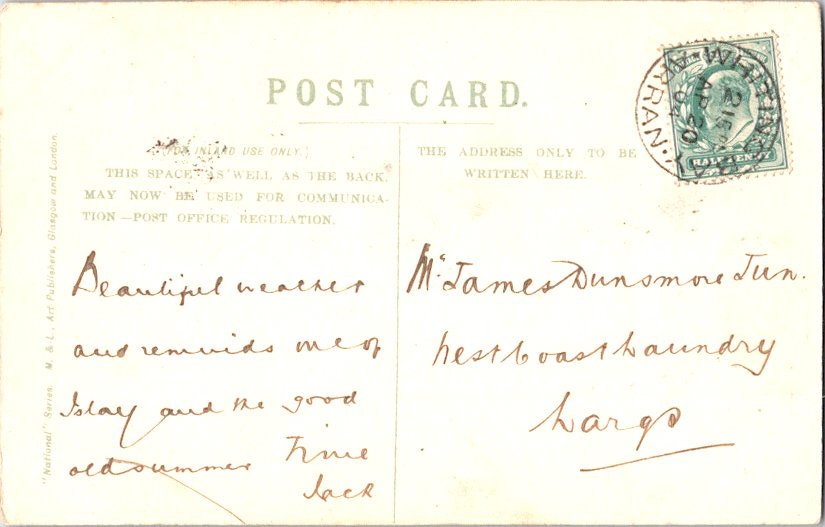 POST CARD.
(FOR INLAND USE ONLY.)
THIS SPACE AS WELL AS THE BACK.
MAY NOW BE USED FOR COMMUNICA-
TION—POST OFFICE REGULATION.
THE ADDRESS ONLY TO BE
WRITTEN HERE.
"National" Series. M. & L., Art Publishers, Glasgow and London.
Beautiful weather
and reminds me of
Islay and the good
old summer Time
Jack
Mr James Dunsmore Jun.
West Coast Laundry
Largs
HALFPENNY
ARRAN
AP 20